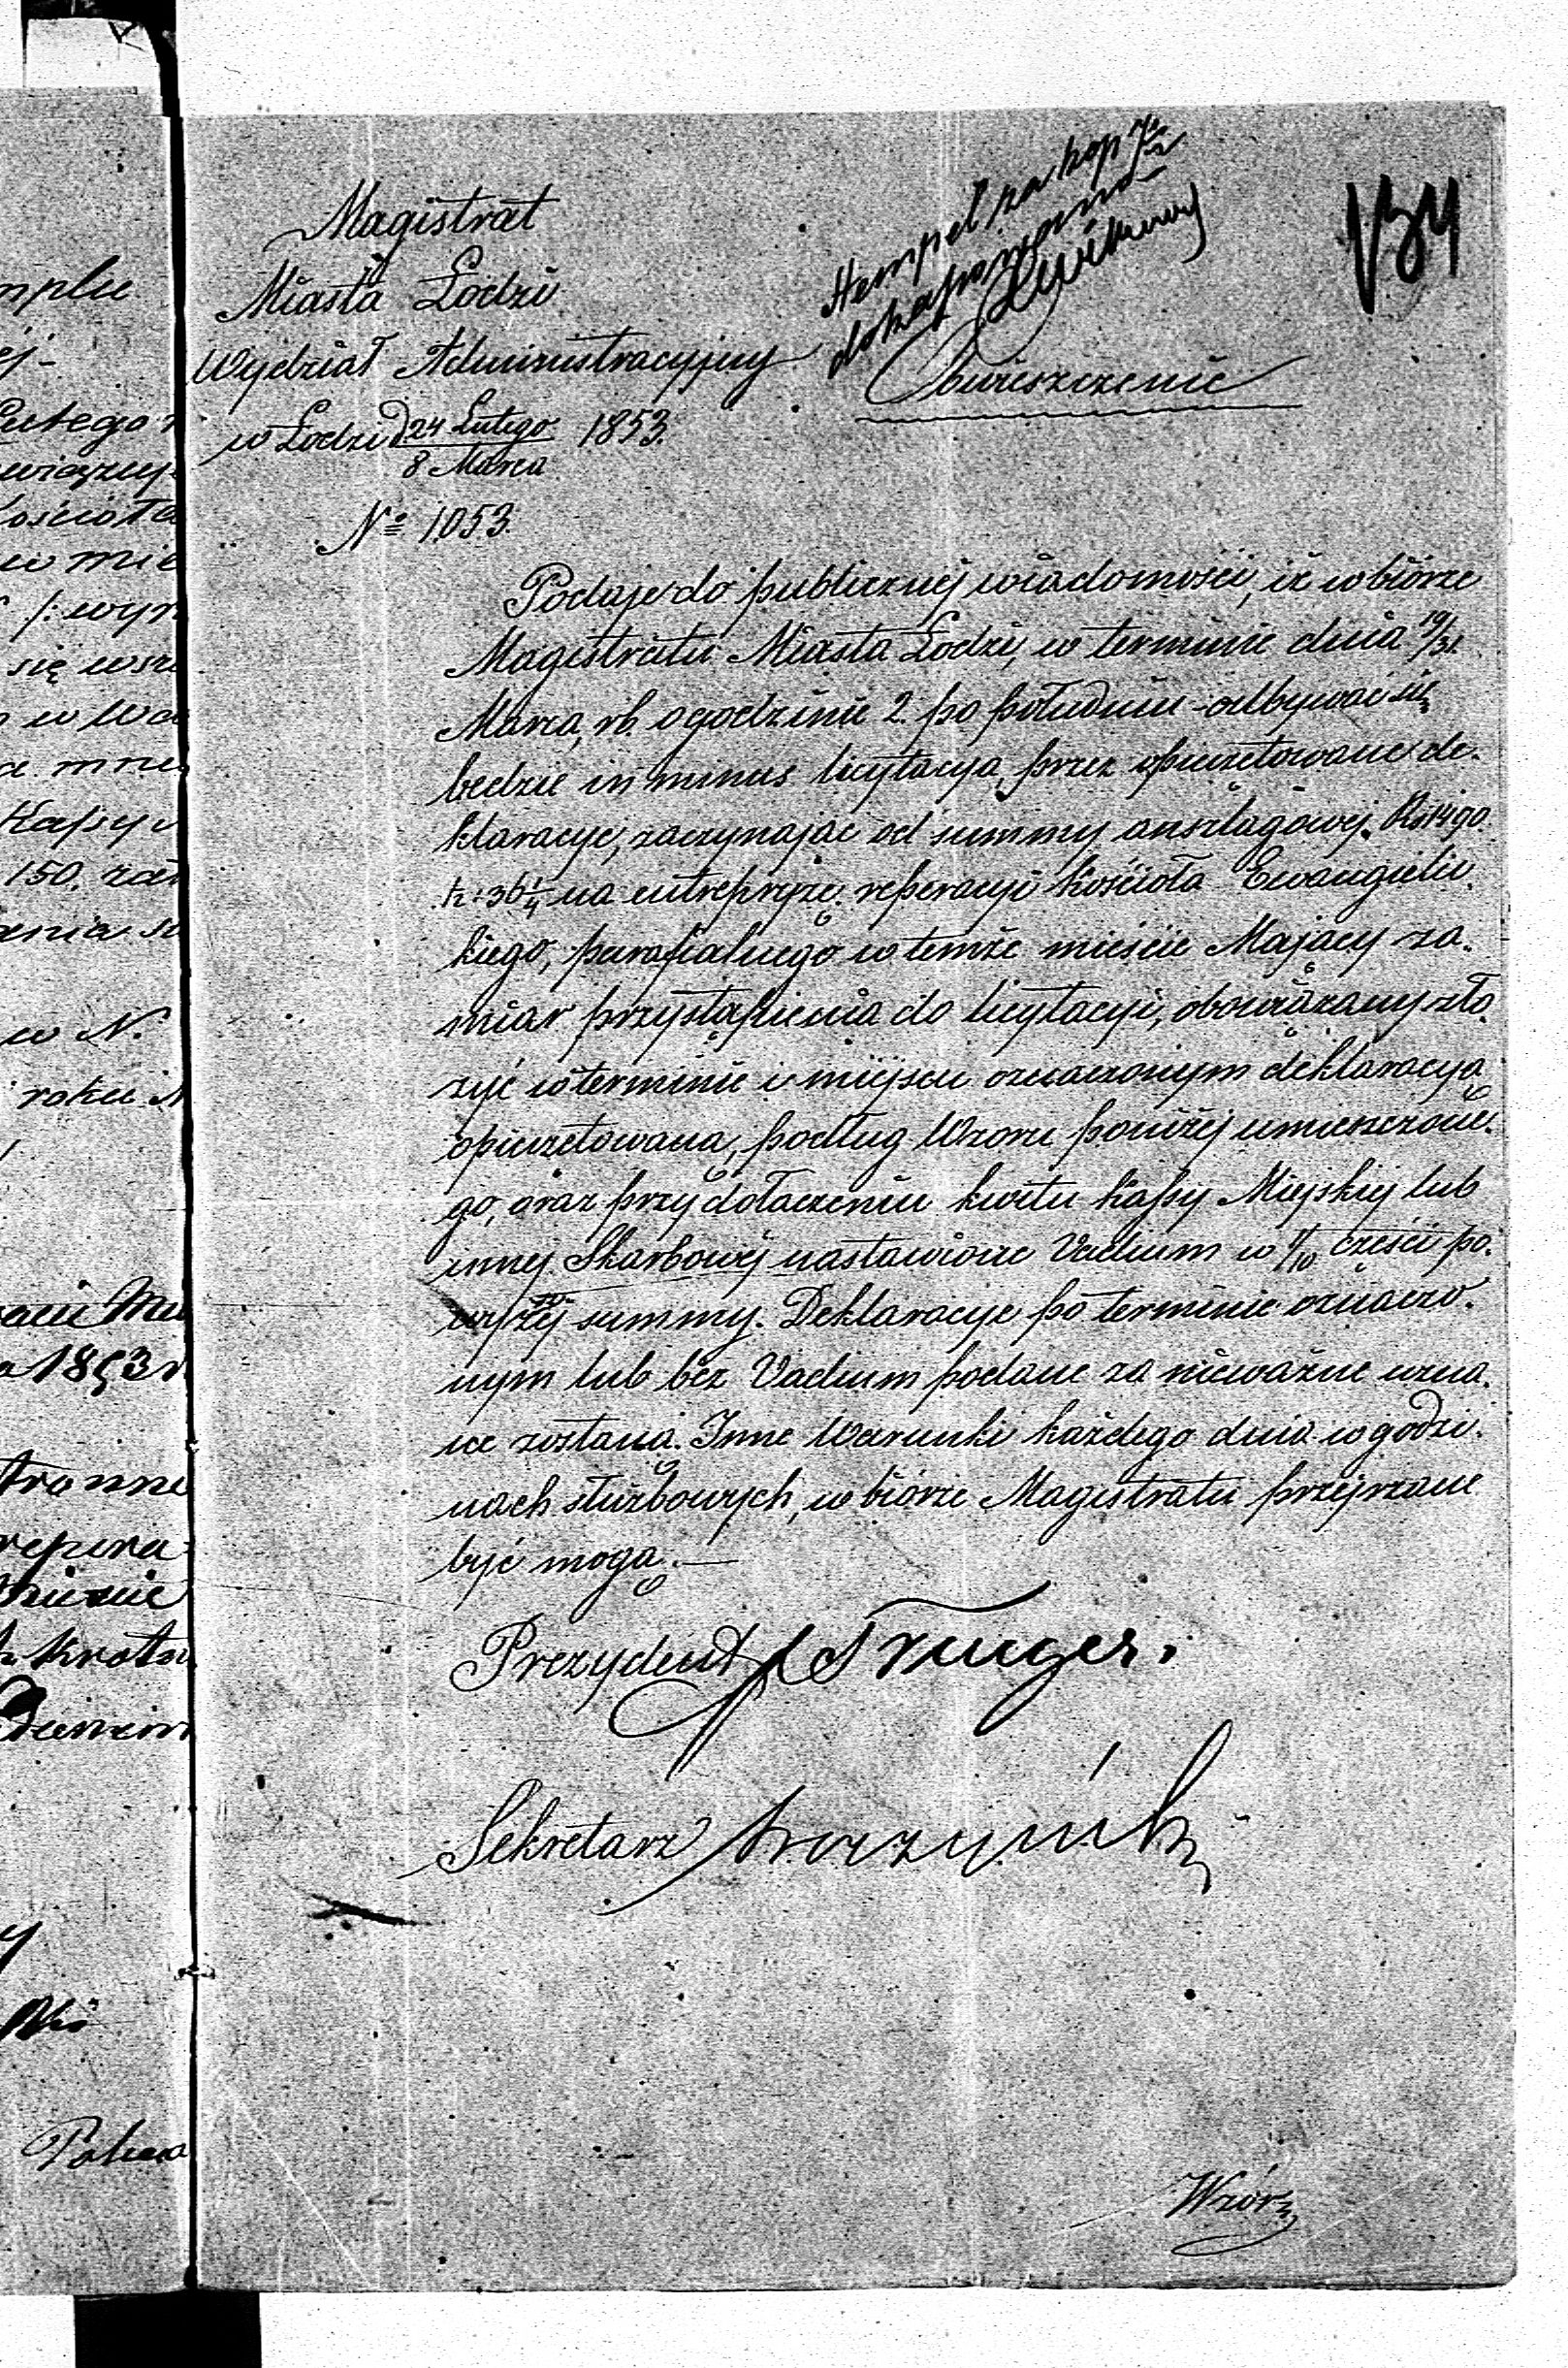 Magistrat
Miasta Łodzi
Wydział Administracyjny
w Łodzi d 24 Lutego 1853.
8 Marca
No 1053.
Stempel za kop 7½
do kassowano
134
Obwieszczenie
Podaje do publicznej wiadomości, iż w biórze
Magistratu Miasta Łodzi, w terminie dnia 19/31.
Marca, rb. o godzinie 2. po południu odbywać się
bedzie in minus licytacya przez opieczętowane de-
klaracye, zaczynając od summy anszlagowej Rs 1490
k: 36¼ na entrepryzę reperacyi Kościoła Ewangielic-
kiego, parafialnego w temże mieście Mający za-
miar przystąpienia do licytacyi, obowiązany zło-
żyć w terminie i miejscu oznaczonym deklaracyą
opieczętowaną, podług Wzoru poniżej umieszczone-
go, oraz przy dołączeniu kwitu kassy Miejskiej lub
innej Skarbowej na stawione Vadium w 1/10 części po-
wyższej summy. Deklaracye po terminie oznaczo-
nym lub bez Vadium podane za nieważne uzna-
ne zostaną. Inne Warunki każdego dnia w godzi-
nach służbowych, w biórze Magistratu przejrzane
być mogą.—
Prezydent Traeger.
Sekretarz
Wzór
mplu
ej-
Lutego
Kościoła
w mie
/: wyr
się wsze
w Wa
a mnie
Kassy
150.
w N.
roku
1853 r
stronne
repera
krotn
Pokwa